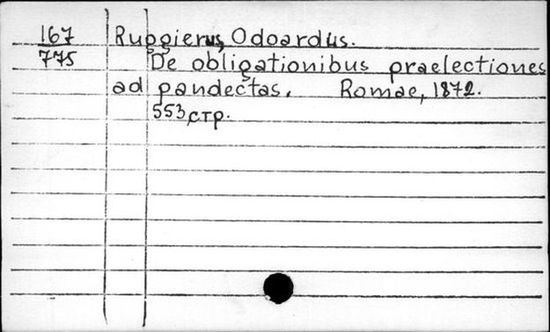 167 Ruggierus, Odoardus.
775 De obligationibus praelectiones
ad pandectas. Romae, 1872.
553 стр.